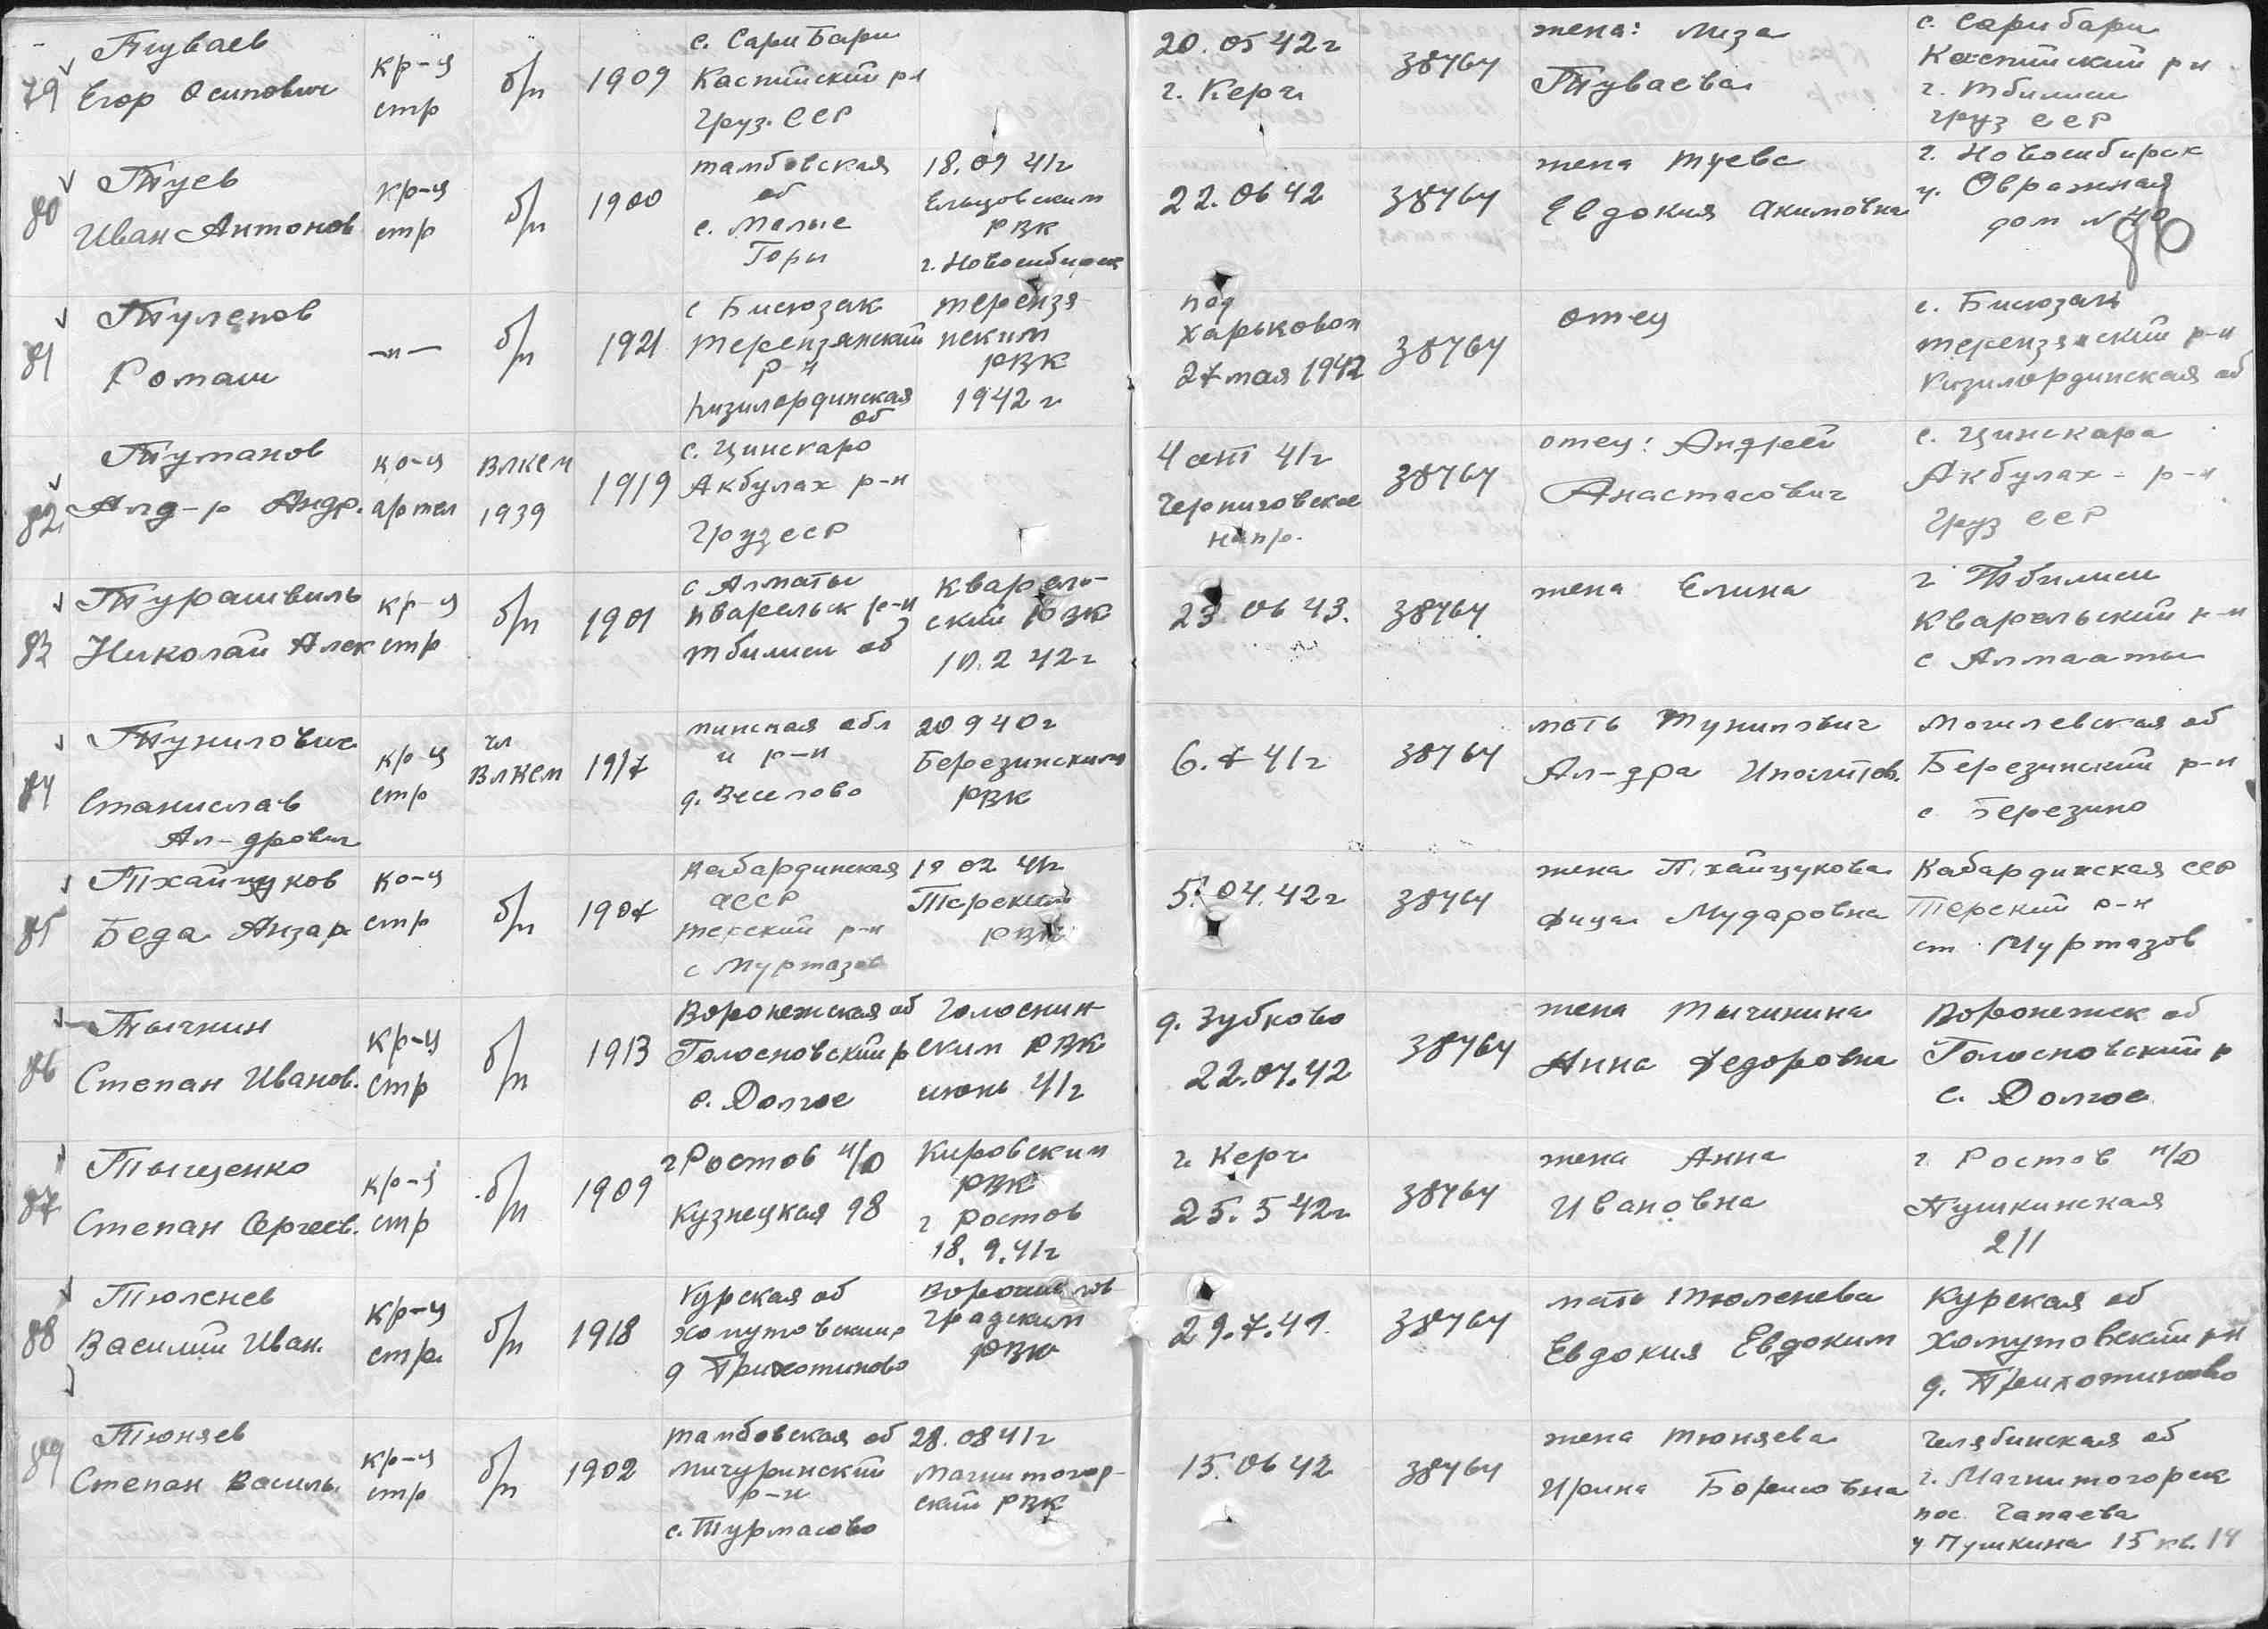 79 Туваев
Егор Осипович
кр-ц
стр
б/п
1909
с. Сари Бари
Каспийский р-н
Груз. ССР
20.05 42 г
г. Керч
38764
жена: Лиза
Туваева
с. Сари бари
Каспийский р н
г. Тбилиси
Груз ССР
80 Туев
Иван Антонов
кр-ц
стр
б/п
1900
Тамбовская
об
с. Малые
Горы
18.09 41г
Ельцовским
РВК
г. Новосибирск
22.06 42
38764
жена Туева
Евдокия Акимовна
г. Новосибирск
у. Овражная
дом № 40
81 Туленов
Ромаш
-"-
б/п
1921
с Бисюзак
Терензянский
р-н
Кизилординская
об
Терензя
нским
РВК
1942 г
под
Харьковом
27 мая 1942
38764
отец
с. Бисюзак
Терензянский р-н
Кизилординская об
82 Туманов
Алд-р Андр.
ко-ц
артил
ВЛКСМ
1939
1919
с. Цинскаро
Акбулах р-н
Груз ССР
4 окт 41г
Черниговское
напр.
38764
отец: Андрей
Анастасович
с. Цинскара
Акбулах - р-н
Груз ССР
83 Турашвиль
Николай Алек
кр-ц
стр
б/п
1901
с Алматы
Кварельск р-н
Тбилиси об
Кварель-
ский РВК
10.2 42г
23.06 43.
38764
жена Елина
г Тбилиси
Кварельский р-н
с Алмааты
84 Тунилович
Станислав
Ал-дрович
кр-ц
стр
чл
ВЛКСМ
1917
Пинская обл
и р-н
д. Веселово
20 9 40г
Березинским
РВК
6.7 41г
38764
мать Тунилович
Ал-дра Иполитов.
Могилевская об
Березинский р-н
с Березино
85 Тхайцуков
Беда Анзар
ко-ц
стр
б/п
1907
Кабардинская
АССР
Терский р-н
с Муртазов
19 02 41г
Терским
РВК
5.04.42г
38764
жена Тхайцукова
Фица Мударовна
Кабардинская ССР
Терский р-н
ст Муртазов
86 Тычинин
Степан Иванов.
кр-ц
стр
б/п
1913
Воронежская об
Голосновский р
с. Долгое
Голоснин
ским РВК
июнь 41г
д. Зубково
22.07.42
38764
жена Тычинина
Анна Федоровна
Воронежск об
Голосновский р
с. Долгое
87 Тыщенко
Степан Сергеев.
кр-ц
стр
б/п
1909
г Ростов н/Д
Кузнецкая 98
Кировским
РВК
г Ростов
18.9.41г
г. Керч
25.5 42г
38764
жена Анна
Ивановна
г. Ростов н/Д
Пушкинская
211
88 Тюленев
Василий Иван.
кр-ц
стр.
б/п
1918
Курская об
Хомутовский р
д Прихотиново
Ворошилов
градским
РВК
29.7.41.
38764
мать Тюленева
Евдокия Евдоким
Курская об
Хомутовский р-н
д. Прихотиново
89 Тюняев
Степан Василь.
кр-ц
стр
б/п
1902
Тамбовская об
Мичуринский
р-н
с. Турмасово
28.08 41г
Магнитогор-
ский РВК
15.06 42
38764
жена Тюняева
Ирина Борисовна
Челябинская об
г. Магнитогорск
пос. Чапаева
у Пушкина 15 кв. 14